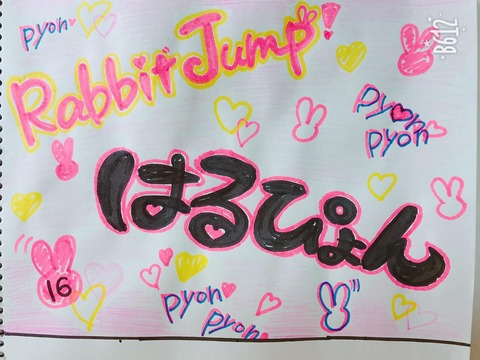 pyon
Rabbit Jump!
B612
pyon
pyon
はるぴょん
16
pyon
pyon